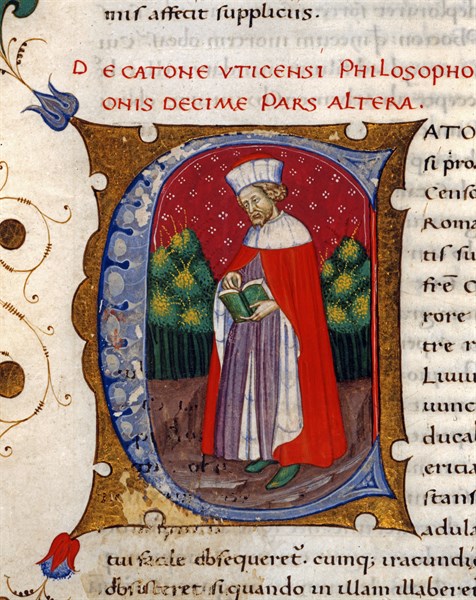 mis affecit suppliciis.
DE CATONE VTICENSI PHILOSOPHO
ONIS DECIME PARS ALTERA.
CATO
si pro
Censo
Roma
tis su
frē C
rore
tre r
Liuu
uunc
ducal
ericia
stans
adula
tui facile obsequeret̄. cumq; iracundi
obsisteret si quando in illam illabere